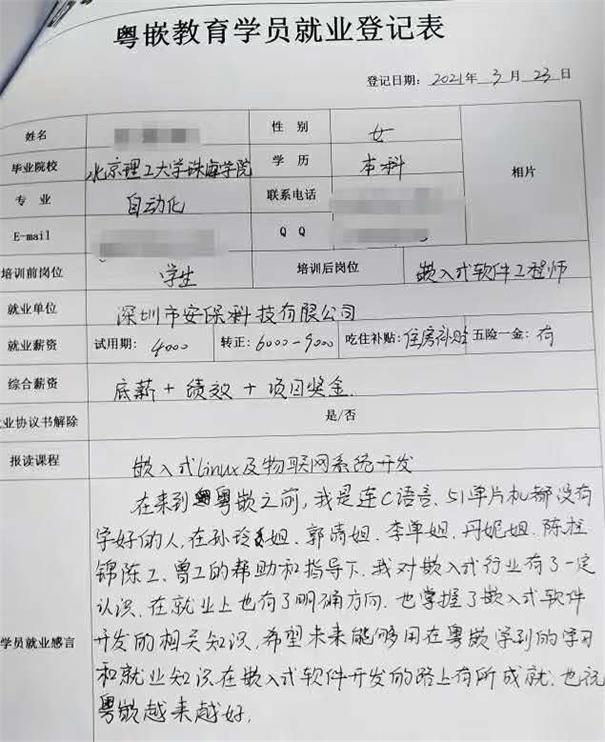 粤嵌教育学员就业登记表
登记日期: 2021年 3月 23日
姓名 性别 女
毕业院校 北京理工大学珠海学院 学历 本科 相片
专业 自动化 联系电话
E-mail QQ
培训前岗位 学生 培训后岗位 嵌入式软件工程师
就业单位 深圳市安保科技有限公司
就业薪资 试用期: 4000 转正: 6000-9000 吃住补贴: 住房补贴 五险一金: 有
综合薪资 底薪+绩效+项目奖金.
业协议书解除 是/否
报读课程 嵌入式Linux及物联网系统开发
在来到粤嵌之前,我是连C语言、51单片机都没有
学好的人,在孙玲姐、郭清姐、李单姐、丹妮姐、陈桂
锦陈工、曾工的帮助和指导下,我对嵌入式行业有了一定
认识,在就业上也有了明确方向,也掌握了嵌入式软件
学员就业感言 开发的相关知识,希望未来能够用在粤嵌学到的学习
和就业知识在嵌入式软件开发的路上有所成就,也祝
粤嵌越来越好.